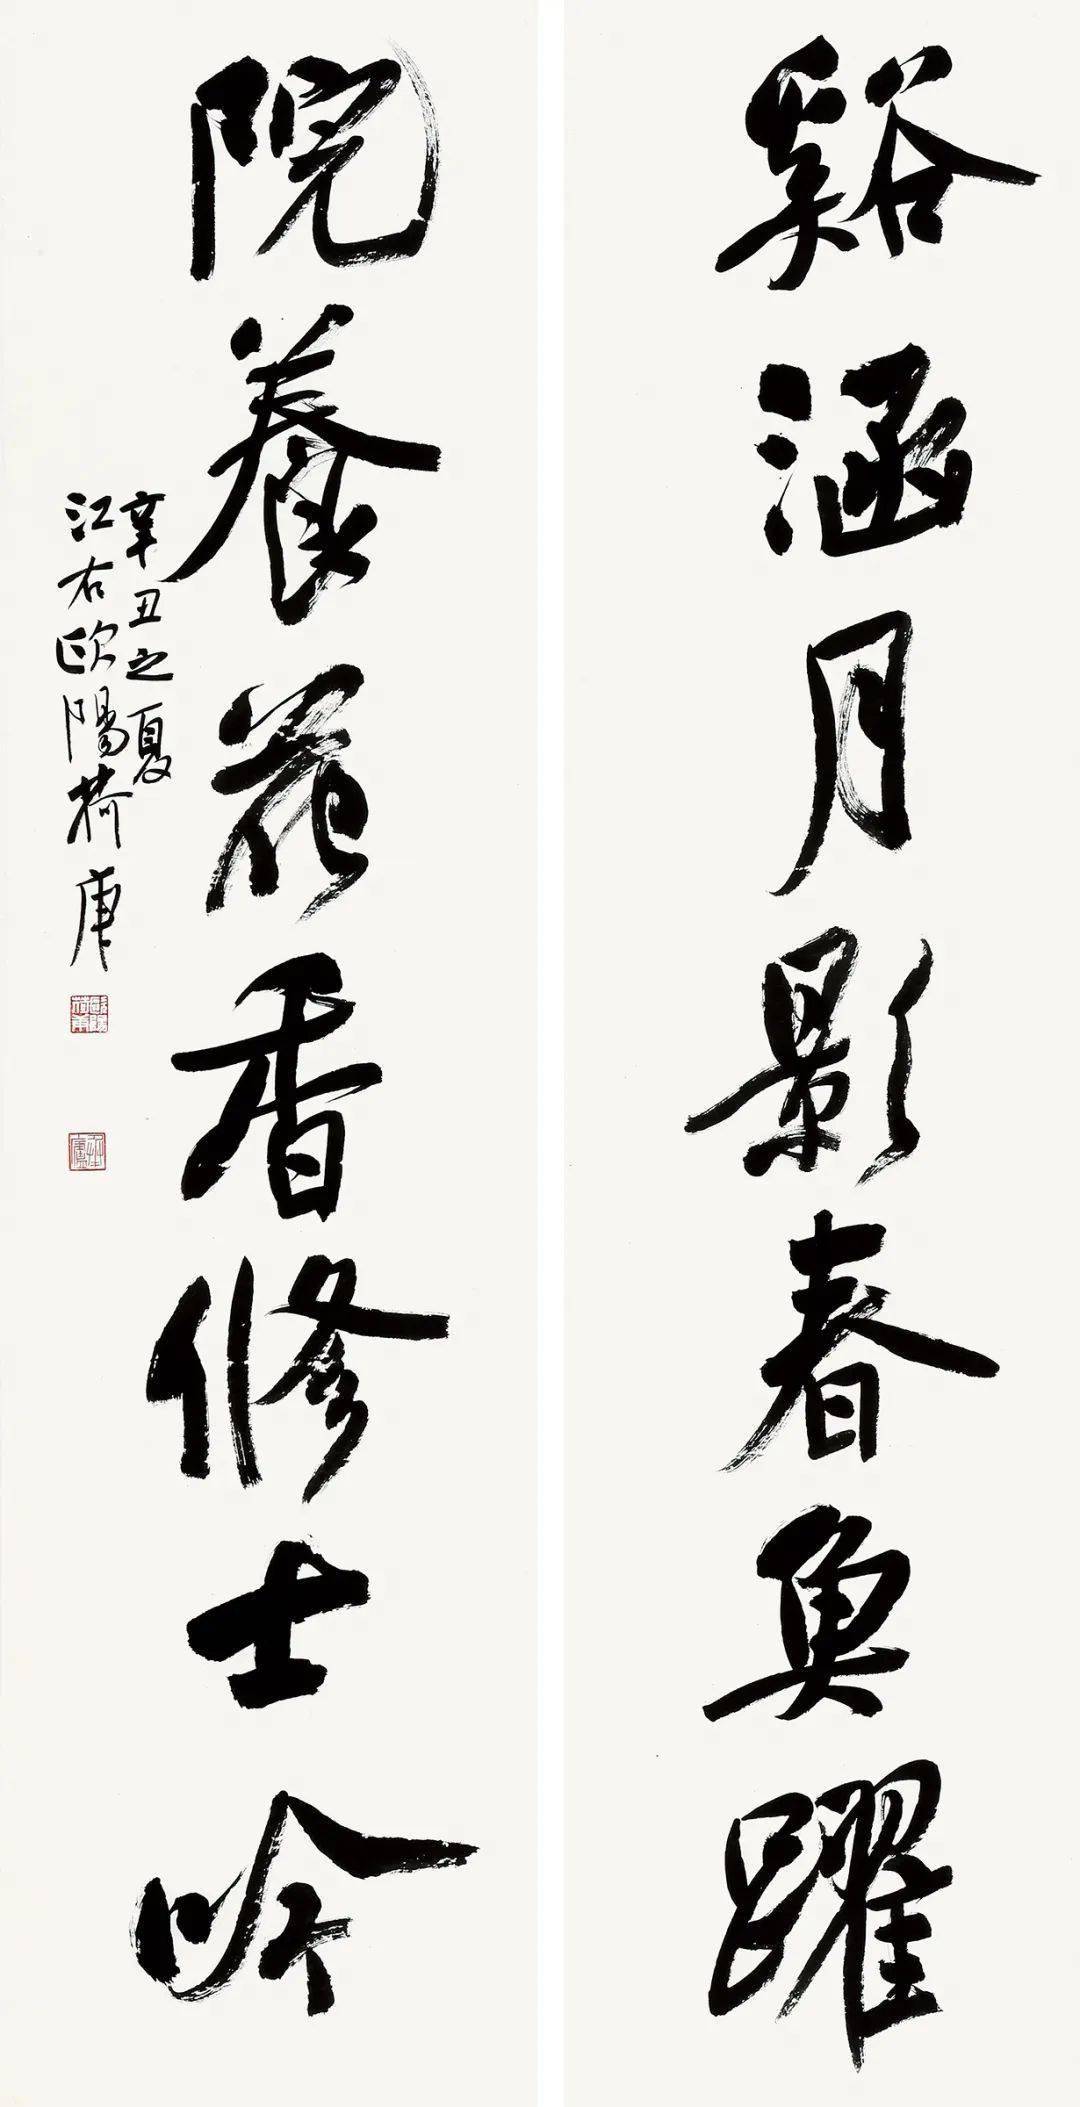 谿涵月影春魚躍
院養花香修士吟
辛丑之夏
江右歐陽荷庚